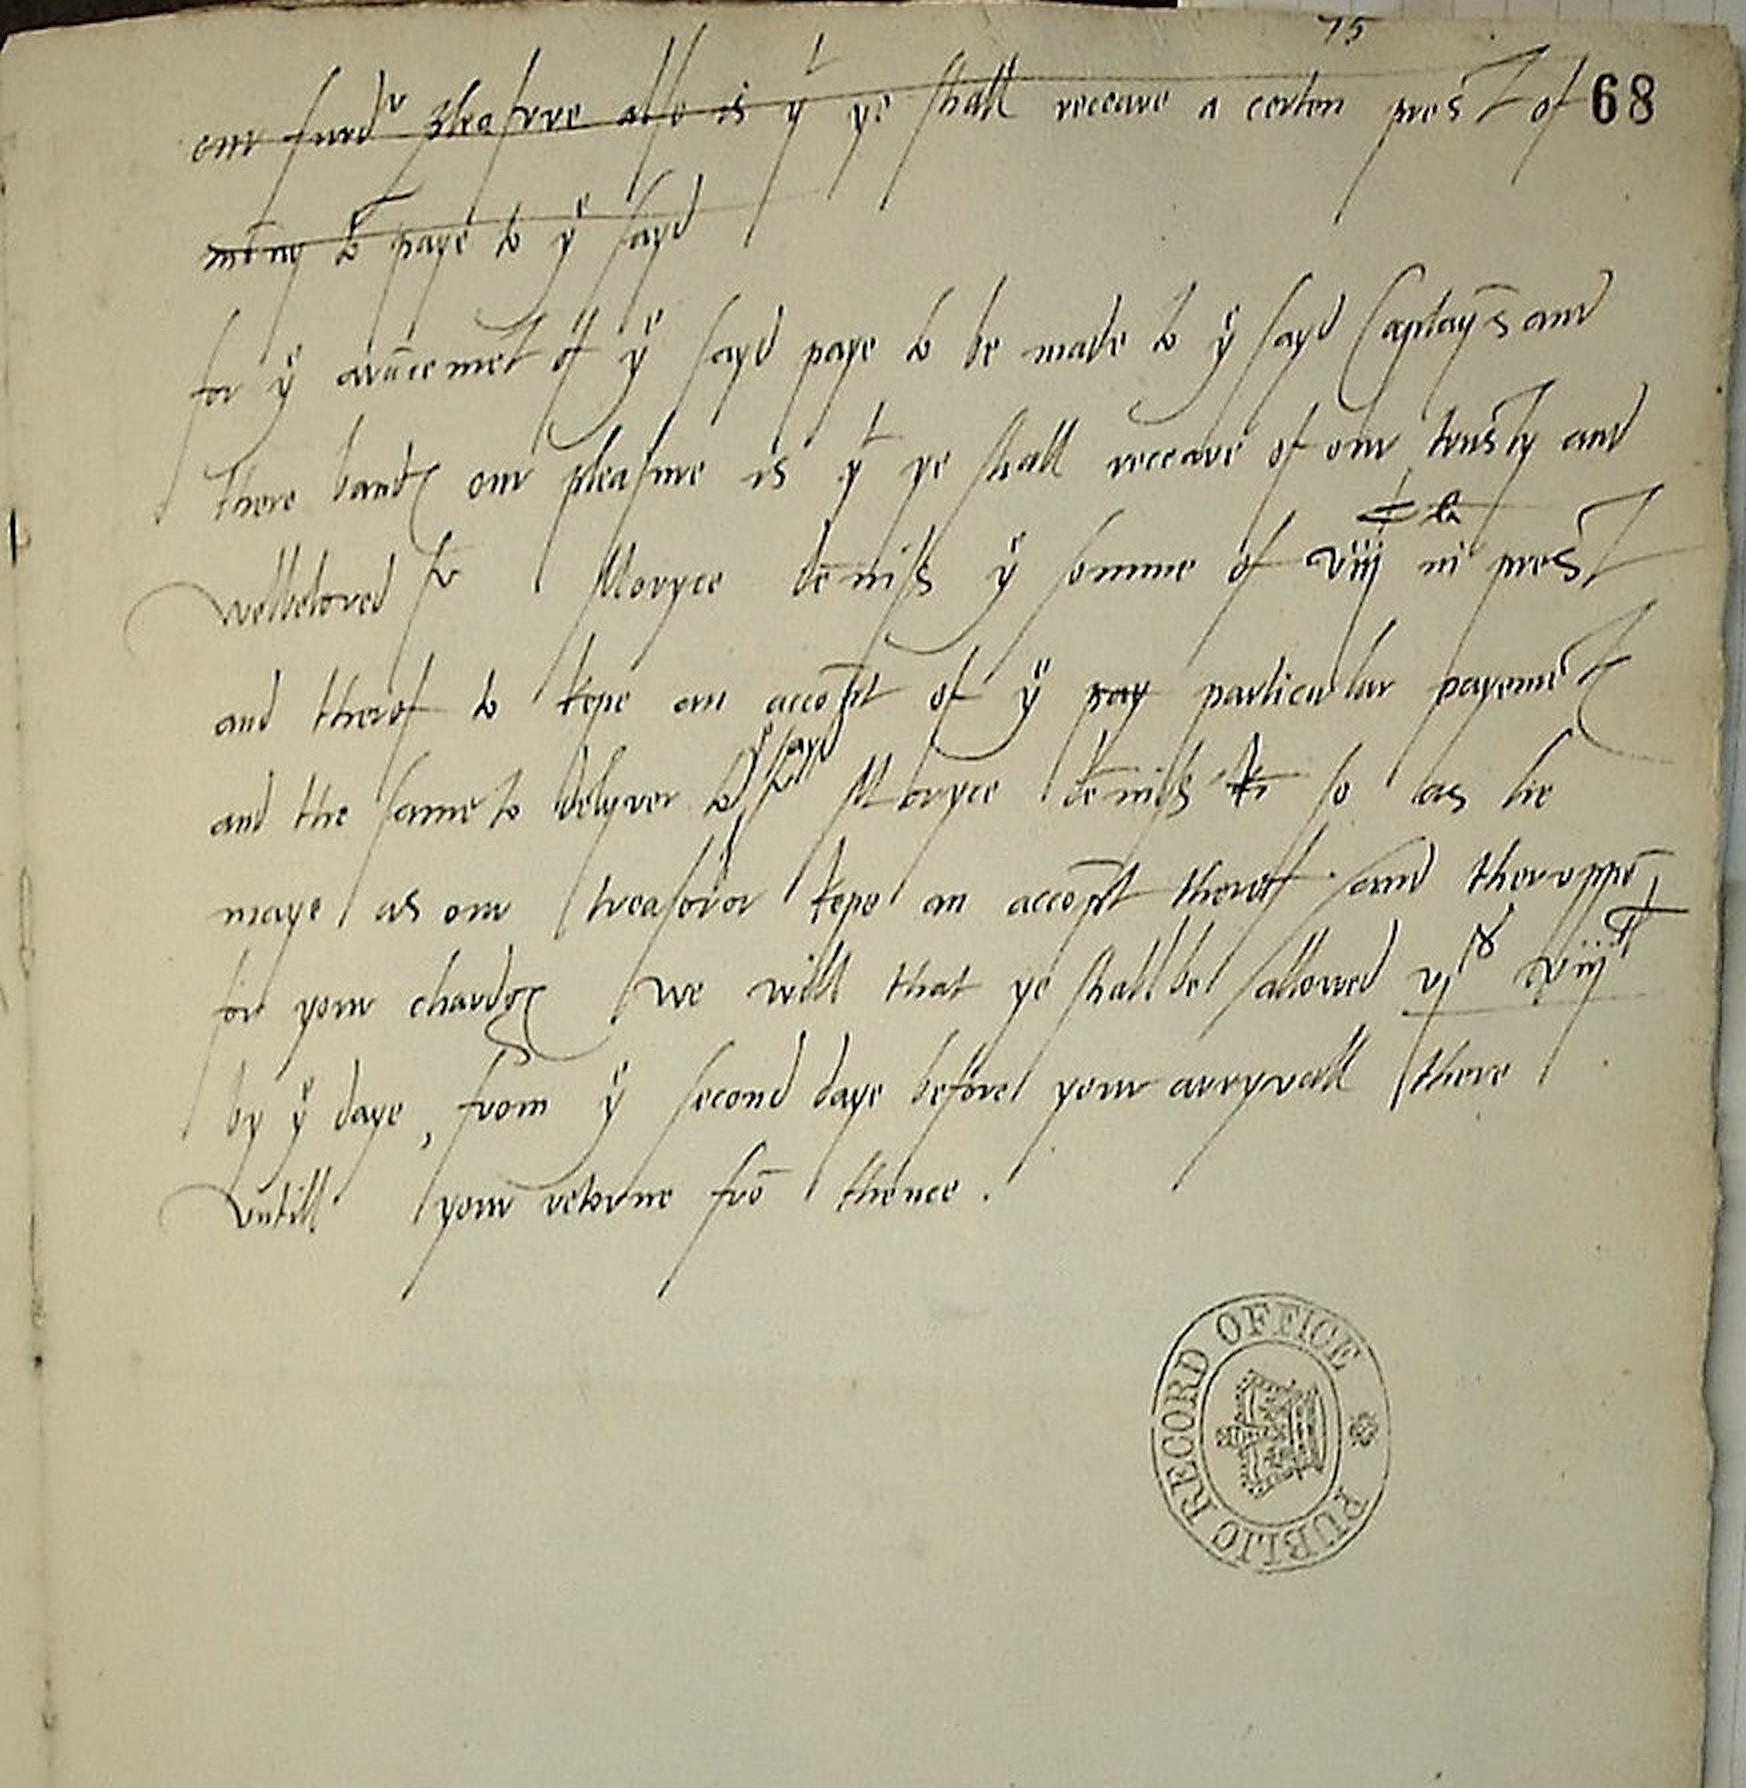 75
68
our furdr pleasure also is yt ye shall receave a certen prest of
mony to paye to ye sayd
for ye avācemēt of ye sayd paye to be made to ye sayd Captayns and
there bandes our pleasure is yt ye shall receave of our trusty and
welbeloved Sr Moryce dēniss ye somme of viij c li in prest
and therof to kepe an accōpt of ye pay particular payemētes
and the same to delyver to ye sayd Sr Moryce dēniss to so as he
maye as our treasoror kepe an accōpt therof. and theruppō
for your chardges we will that ye shall be allowed vjs viijd
by ye daye, from ye second daye before your arryvall there
Untill your retorne frō thence.
PUBLIC RECORD OFFICE